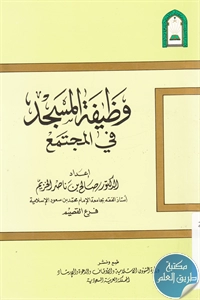 وظيفة المسجد
في المجتمع
إعداد
الدكتور صالح بن ناصر الخزيم
أستاذ الفقه بجامعة الإمام محمد بن سعود الإسلامية
فرع القصيم
طبع ونشر
وزارة الشؤون الإسلامية والأوقاف والدعوة والإرشاد
المملكة العربية السعودية
مكتبة
طريق العلم